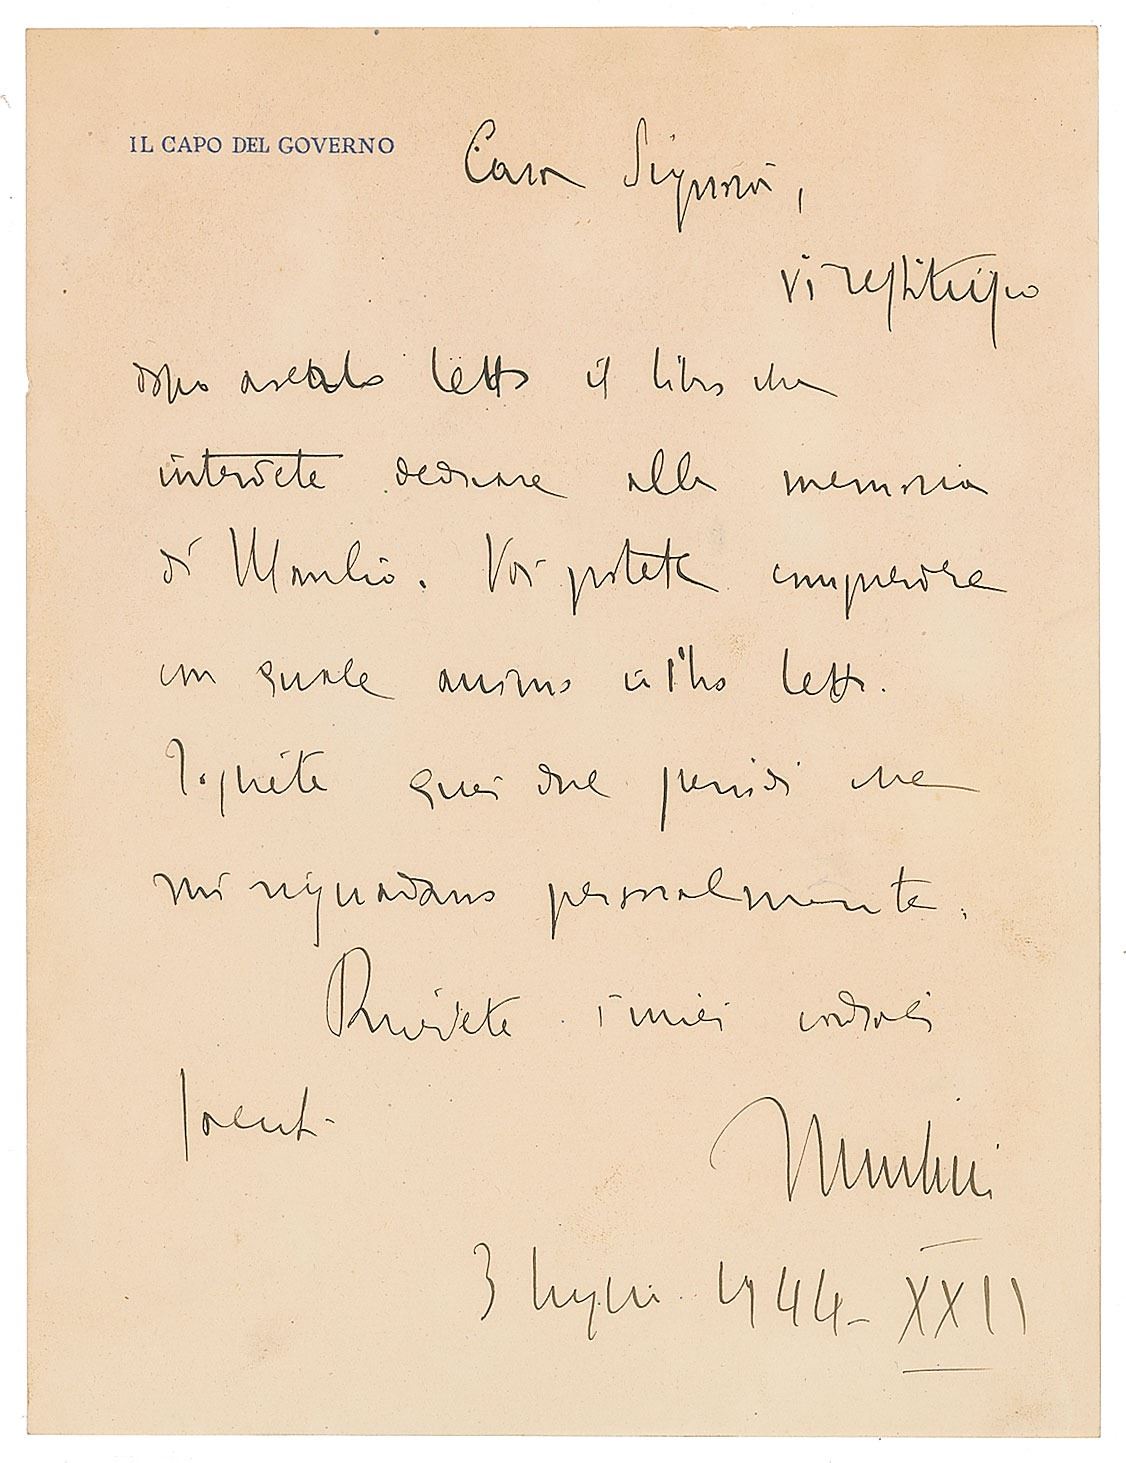 IL CAPO DEL GOVERNO
Cara Signora,
vi restituisco
dopo averlo letto il libro che
intendete dedicare alla memoria
di Manlio. Voi potete comprendere
con quale animo io l'ho letto.
Togliete quei due periodi che
mi riguardano personalmente.
Ricevete i miei cordiali
saluti
Mussolini
3 luglio 1944 - XXII